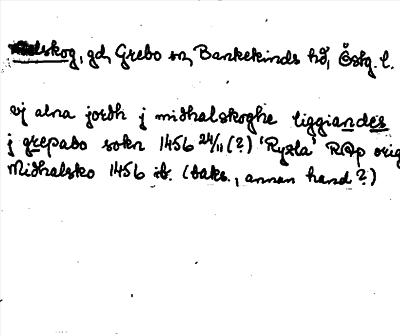 skog, gd, Grebo sn, Bankekinds hd, Östg. l.
vj alna jordh j midhalskoghe liggiandes
j grepabo sokn 1456 24/11 (?) 'Ryzla' RAp orig
Midhalsko 1456 ib. (baks., annan hand?)